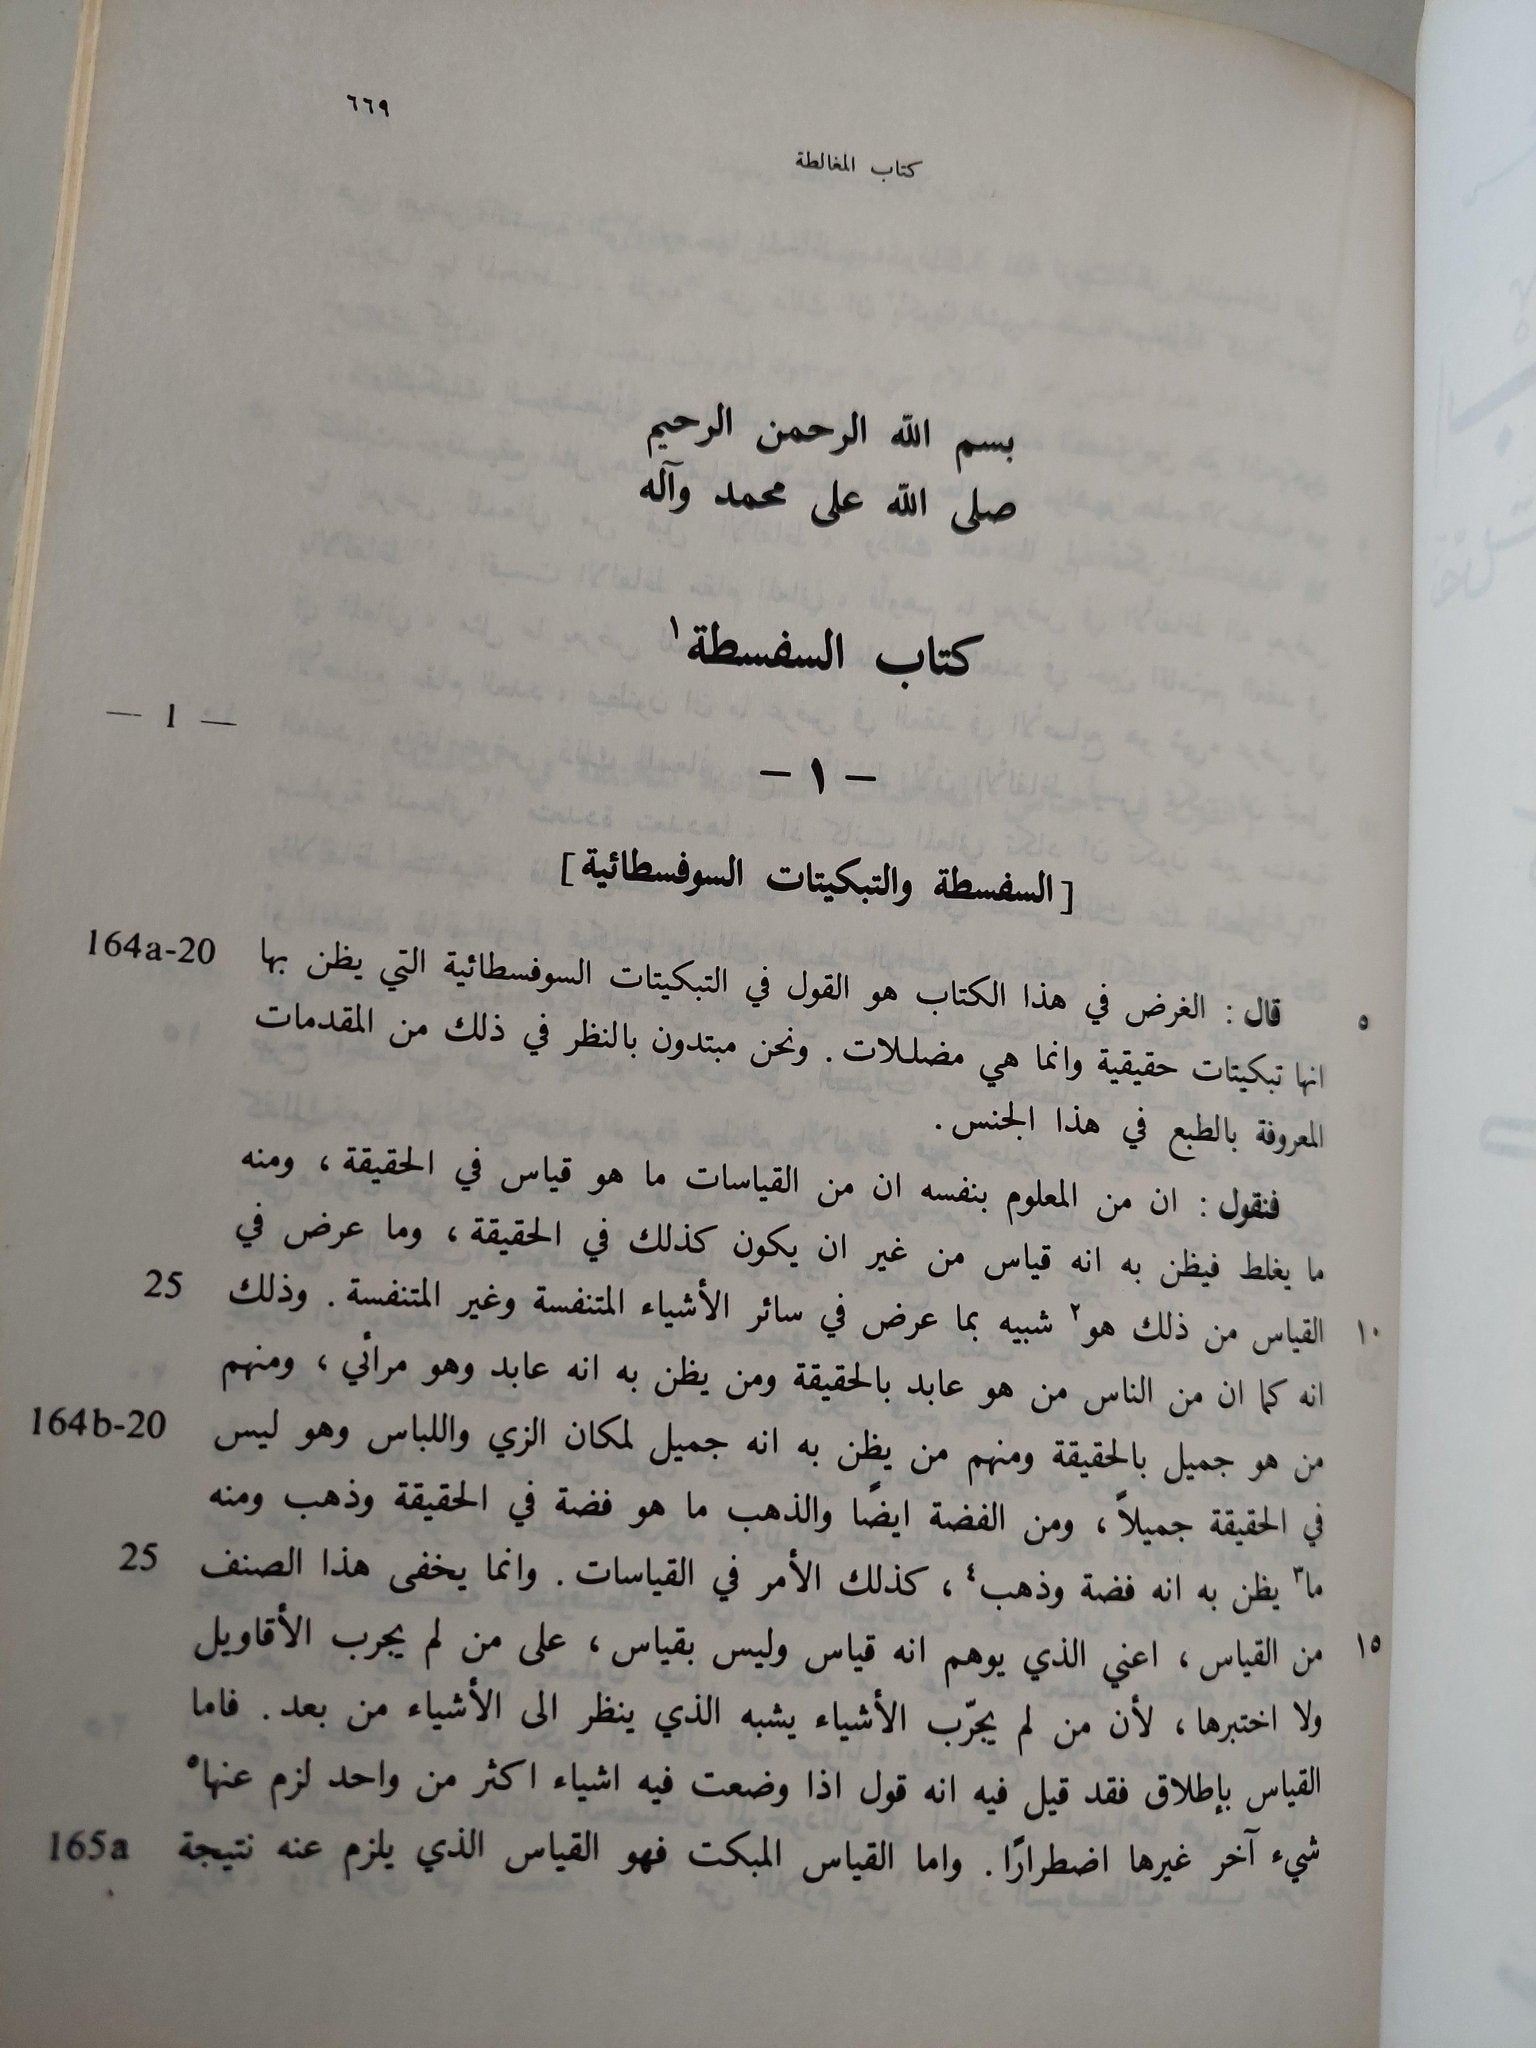 ٦٦٩
كتاب المغالطة
بسم الله الرحمن الرحيم
صلى الله على محمد وآله
كتاب السفسطة١
— I —
— ١ —
[السفسطة والتبكيتات السوفسطائية]
164a-20 قال : الغرض في هذا الكتاب هو القول في التبكيتات السوفسطائية التي يظن بها ٥
انها تبكيتات حقيقية وانما هي مضللات . ونحن مبتدون بالنظر في ذلك من المقدمات
المعروفة بالطبع في هذا الجنس .
فنقول : ان من المعلوم بنفسه ان من القياسات ما هو قياس في الحقيقة ، ومنه
ما يغلط فيظن به انه قياس من غير ان يكون كذلك في الحقيقة ، وما عرض في
25 القياس من ذلك هو٢ شبيه بما عرض في سائر الأشياء المتنفسة وغير المتنفسة . وذلك ١٠
انه كما ان من الناس من هو عابد بالحقيقة ومن يظن به انه عابد وهو مرأئي ، ومنهم
164b-20 من هو جميل بالحقيقة ومنهم من يظن به انه جميل لمكان الزي واللباس وهو ليس
في الحقيقة جميلاً ، ومن الفضة ايضًا والذهب ما هو فضة في الحقيقة وذهب ومنه
25 ما٣ يظن به انه فضة وذهب٤ ، كذلك الأمر في القياسات . وانما يخفى هذا الصنف
من القياس ، اعني الذي يوهم انه قياس وليس بقياس ، على من لم يجرب الأقاويل ١٥
ولا اختبرها ، لأن من لم يجرّب الأشياء يشبه الذي ينظر الى الأشياء من بعد . فاما
القياس بإطلاق فقد قيل فيه انه قول اذا وضعت فيه اشياء اكثر من واحد لزم عنها٥
165a شيء آخر غيرها اضطرارًا . واما القياس المبكت فهو القياس الذي يلزم عنه نتيجة